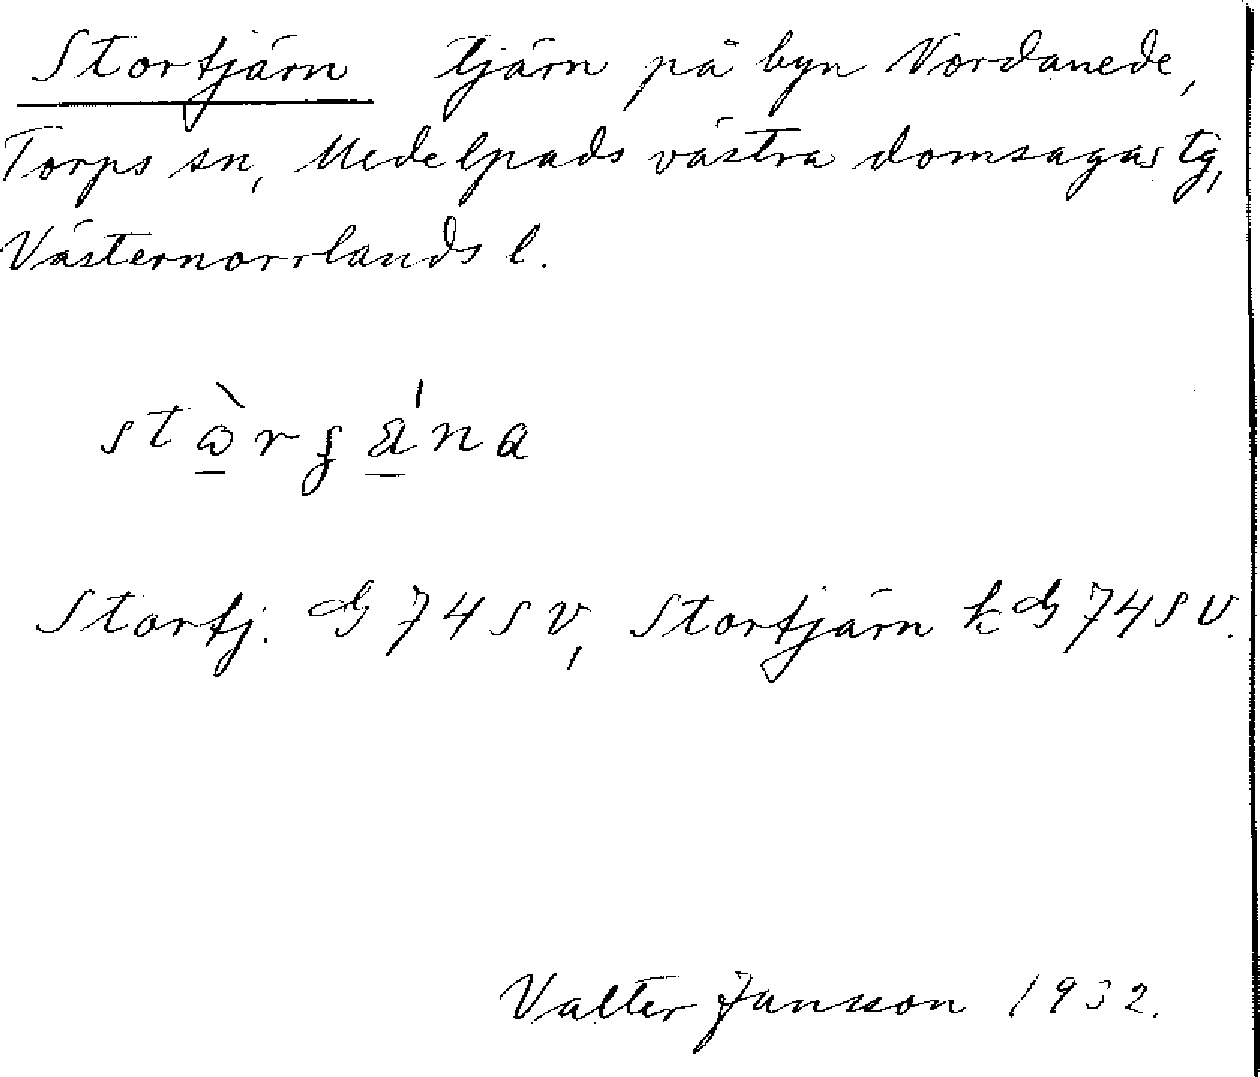 Stortjärn tjärn på byn Nordanede,
Torps sn, Medelpads västra domsagas tg,
Västernorrlands l.
Stortj. G 74 SV, Stortjärn kG 74 SV.
Valter Jansson 1932.